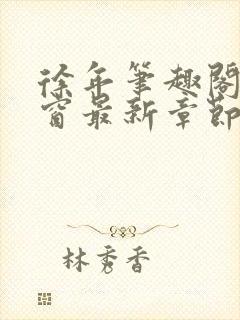 徐年笔趣阁
窗最新章节
林秀香